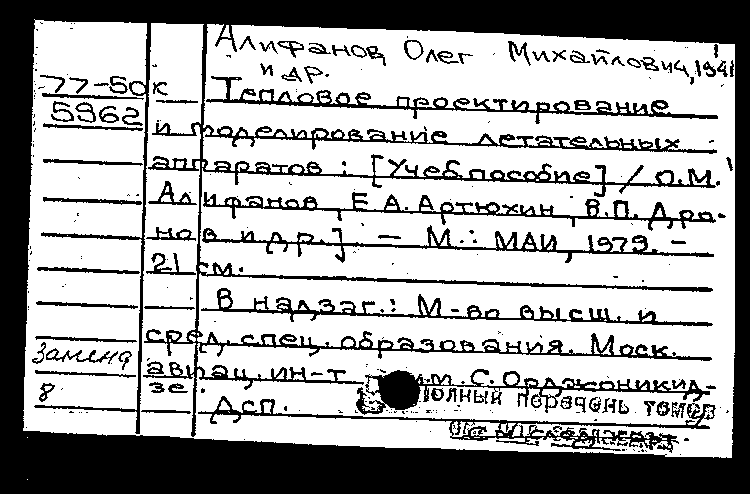 Алифанов, Олег Михайлович, 1941
и др.
77-50к Тепловое проектирование
5962 и моделирование летательных
аппаратов : [Учеб. пособие] / О.М.
Алифанов, Е.А. Артюхин, В.П. Дра-
нов и др.] – М.: МАИ, 1979. –
21 см.
В надзаг.: М-во высш. и
сред. спец. образования. Моск.
Замена авиац. ин-т им. С. Орджоникид-
8 зе.
Дсп. Полный перечень томов